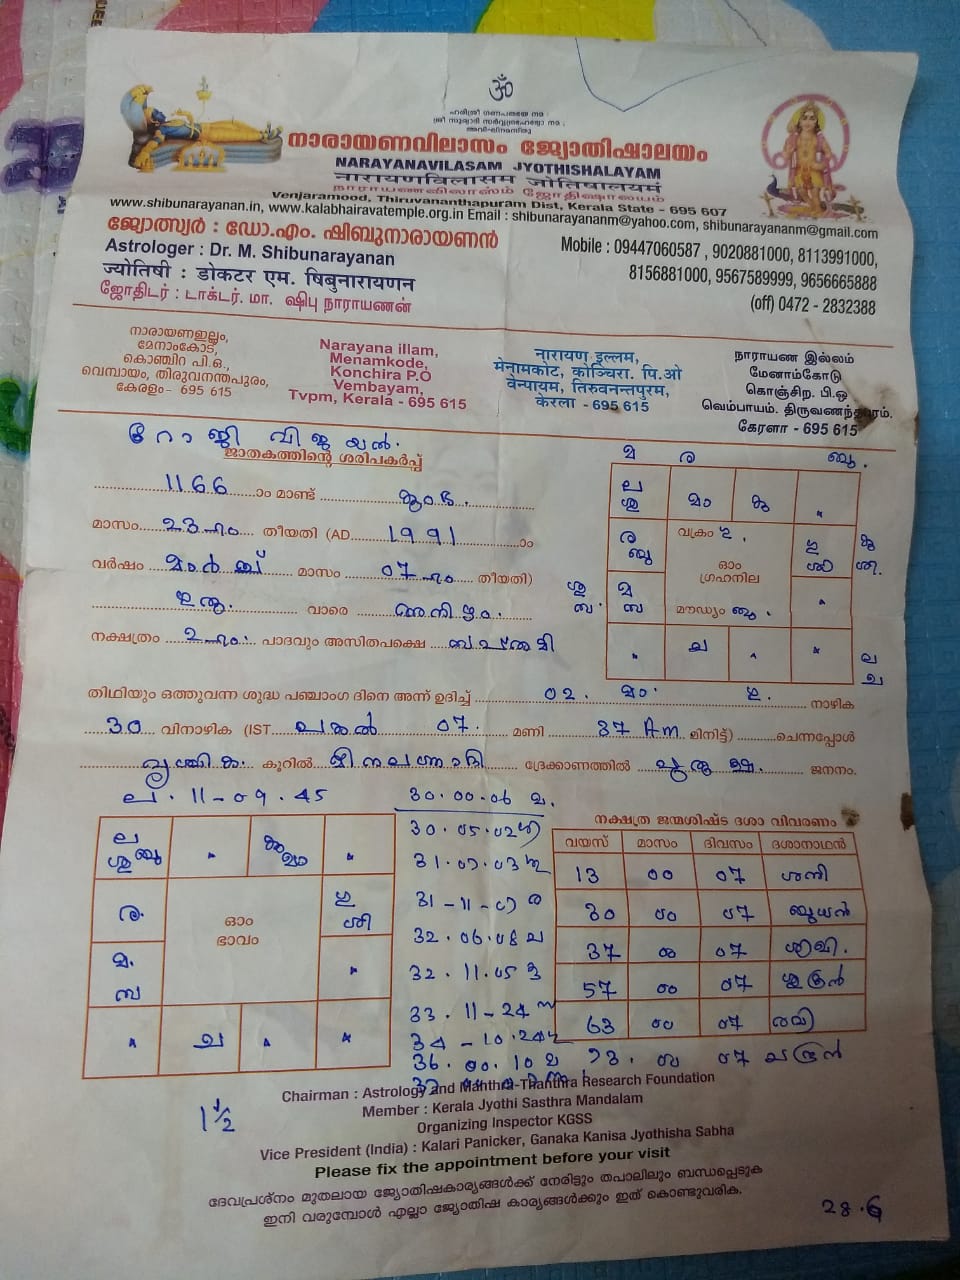 ॐ
ഹരിശ്രീ ഗണപതയെ നമ :
അവിഘ്നമസ്തു
നാരായണവിലാസം ജ്യോതിഷാലയം
NARAYANAVILASAM JYOTHISHALAYAM
नारायणविलासम जोतिषालयमं
Venjaramood, Thiruvananthapuram Dist, Kerala State - 695 607
www.shibunarayanan.in, www.kalabhairavatemple.org.in Email : shibunarayananm@yahoo.com, shibunarayananm@gmail.com
ജ്യോത്സ്യർ : ഡോ.എം. ഷിബുനാരായണൻ
Astrologer : Dr. M. Shibunarayanan
ज्योतिषी : डोकटर एम. षिबुनारायणन
ஜோதிடர் : டாக்டர். மா. ஷிபு நாராயணன்
Mobile : 09447060587 , 9020881000, 8113991000,
8156881000, 9567589999, 9656665888
(off) 0472 - 2832388
നാരായണഇല്ലം,
മേനാംകോട്,
കൊഞ്ചിറ പി.ഒ.,
വെമ്പായം, തിരുവനന്തപുരം,
കേരളം- 695 615
Narayana illam,
Menamkode,
Konchira P.O
Vembayam,
Tvpm, Kerala - 695 615
नारायण इल्लम,
मेनामकोट, कोंच्चिरा. पि.ओ
वेन्पायम, तिरुवनन्तपुरम,
केरला - 695 615
நாராயண இல்லம்
மேனாம்கோடு
கொஞ்சிற. பி.ஒ
வெம்பாயம். திருவணந்தபுரம்.
கேரளா - 695 615
റോജി വിജയൻ.
ജാതകത്തിന്റെ ശരിപകർപ്പ്
1166 ാം മാണ്ട് കുംഭ.
മാസം 23-ാം തീയതി (AD 1991 ാം
വർഷം മാർച്ച് മാസം 07-ാം തീയതി)
വാരെ അനിഴം.
നക്ഷത്രം 2-ാം പാദവും അസിതപക്ഷെ
തിഥിയും ഒത്തുവന്ന ശുദ്ധ പഞ്ചാംഗ ദിനെ അന്ന് ഉദിച്ച് 02. നാഴിക
30 വിനാഴിക (IST പകൽ 07. മണി 37 Am മിനിട്ട്) ചെന്നപ്പോൾ
വൃശ്ചിക കൂറിൽ ദ്രേക്കാണത്തിൽ ജനനം.
മ ര ബു.
ല
ശു
മം കു
ര
ബു
വക്രം
ഓം
ഗ്രഹനില
മൗഢ്യം ബു.
മ
ച
ല
ച
ല. 11-09.45
30.00.06
30.05.02
31-11-07 ര
32.06.08 ച
32.11.05
33.11-24
34-10.24
36.00.10
ല
ഓം
ഭാവം
ര.
മ.
ച
നക്ഷത്ര ജന്മശിഷ്ട ദശാ വിവരണം
വയസ് മാസം ദിവസം ദശാനാഥൻ
13 00 07 ശനി
30 00 07 ബുധൻ
37 00 07 ശിഖി.
57 00 07 ശുക്രൻ
63 00 07 രവി
73. 00 07 ചന്ദ്രൻ
Chairman : Astrology and Manthra-Thanthra Research Foundation
Member : Kerala Jyothi Sasthra Mandalam
Organizing Inspector KGSS
Vice President (India) : Kalari Panicker, Ganaka Kanisa Jyothisha Sabha
Please fix the appointment before your visit
ദേവപ്രശ്നം മുതലായ ജ്യോതിഷകാര്യങ്ങൾക്ക് നേരിട്ടും തപാലിലും ബന്ധപ്പെടുക
ഇനി വരുമ്പോൾ എല്ലാ ജ്യോതിഷ കാര്യങ്ങൾക്കും ഇത് കൊണ്ടുവരിക.
1 1/2
28.6